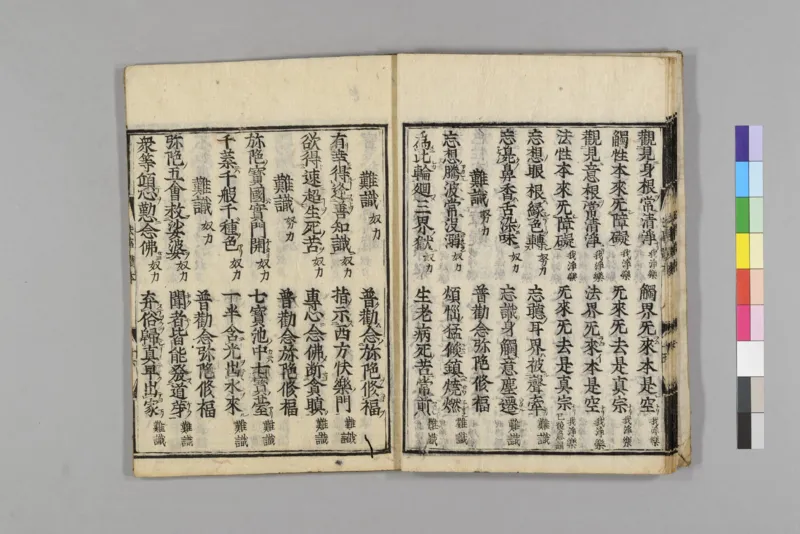 觀見身根常清淨 我淨樂 觸界无來本是空 我淨樂
觸性本來无障礙 我淨樂 无來无去是真宗 我淨樂
觀見意根常清淨 我淨樂 法界无來本是空 我淨樂
法性本來无障礙 我淨樂 无來无去是真宗
忘想眼根緣色轉 努力 忘聽耳界被聲牽 難識
忘鼻香舌染味 努力 忘識身觸意塵遷 難識
難識 努力 普勸念弥陁修福
忘想騰波常没溺 奴力 煩惱猛㷔鎮燒燃 難識
為此輪廻三界獄 奴力 生老病死苦當前 難識
難識 奴力 普勸念弥陁修福
有幸得逢善知識 奴力 指示西方快樂門 難識
欲得速超生死苦 奴力 專心念佛断貪瞋 難識
難識 努力 普勸念弥陁修福
弥陁寶國寶門開 奴力 七寶池中七寶臺 難識
千葉千般千種色 奴力 一半含光出水來 難識
難識 奴力 普勸念弥陁修福
弥陁五會救娑婆 奴力 聞者皆能發道芽 難識
衆等傾心勤念佛 奴力 弃俗歸真早出家 難識